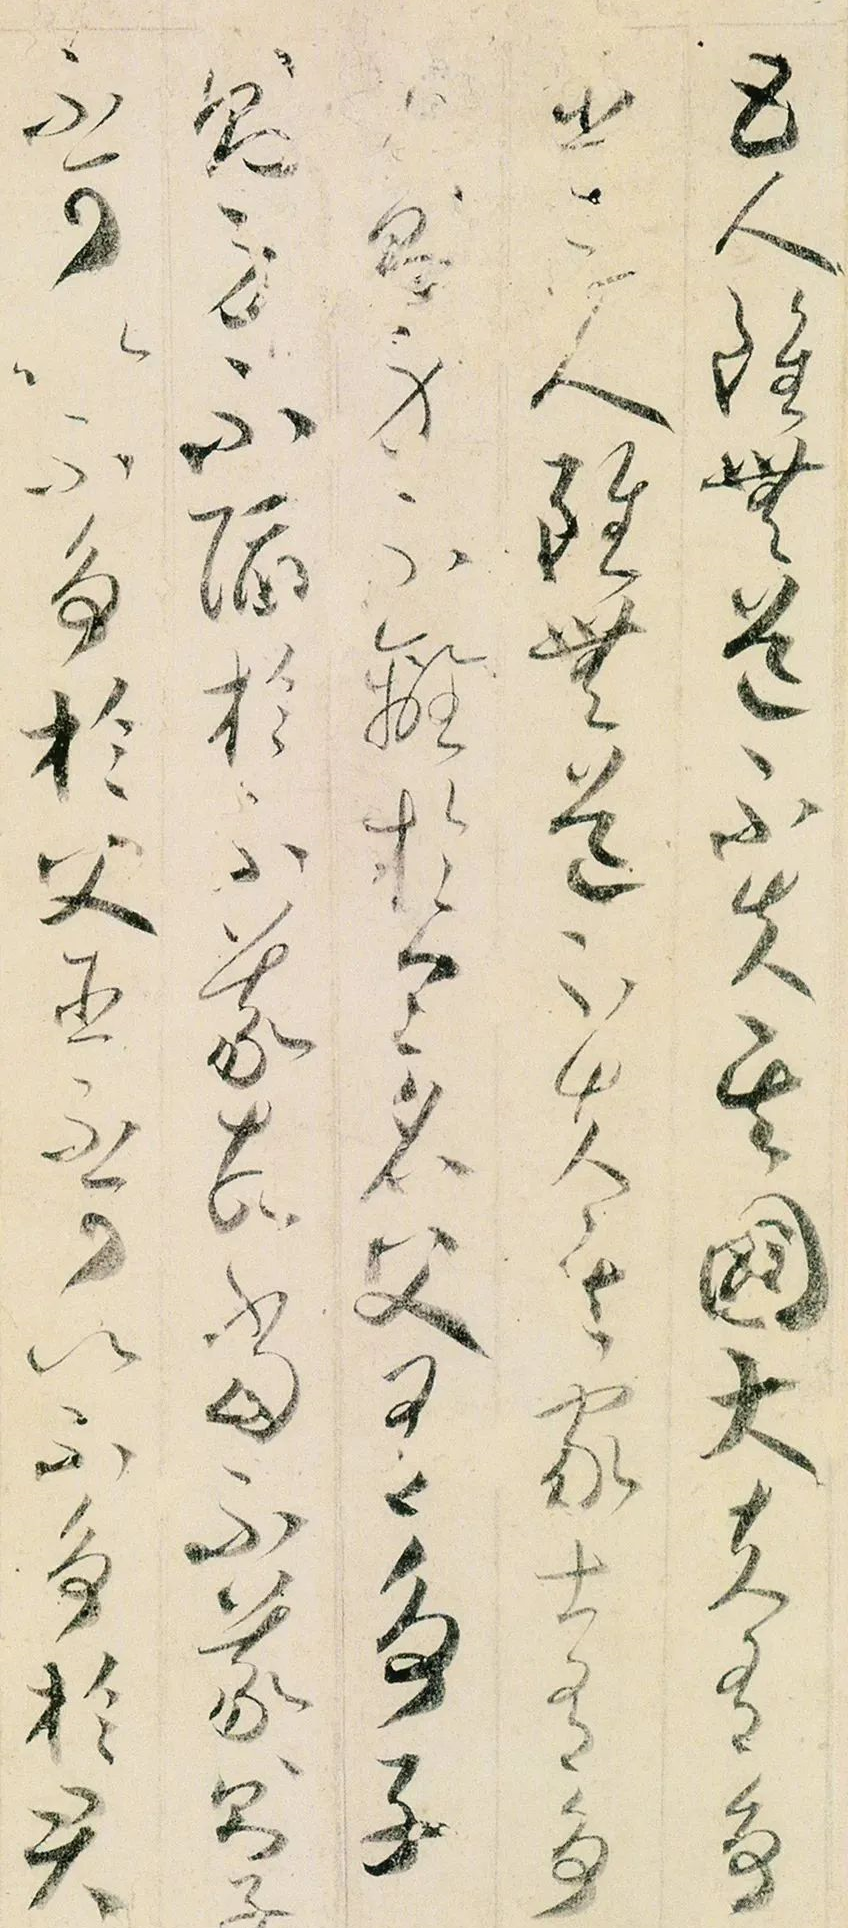 五人雖無道不失其國大夫有爭
臣三人雖無道不失其家士有爭
友則身不離於令名父有爭子
則身不陷於不義故當不義則子
不可以不爭於父臣不可以不爭於君